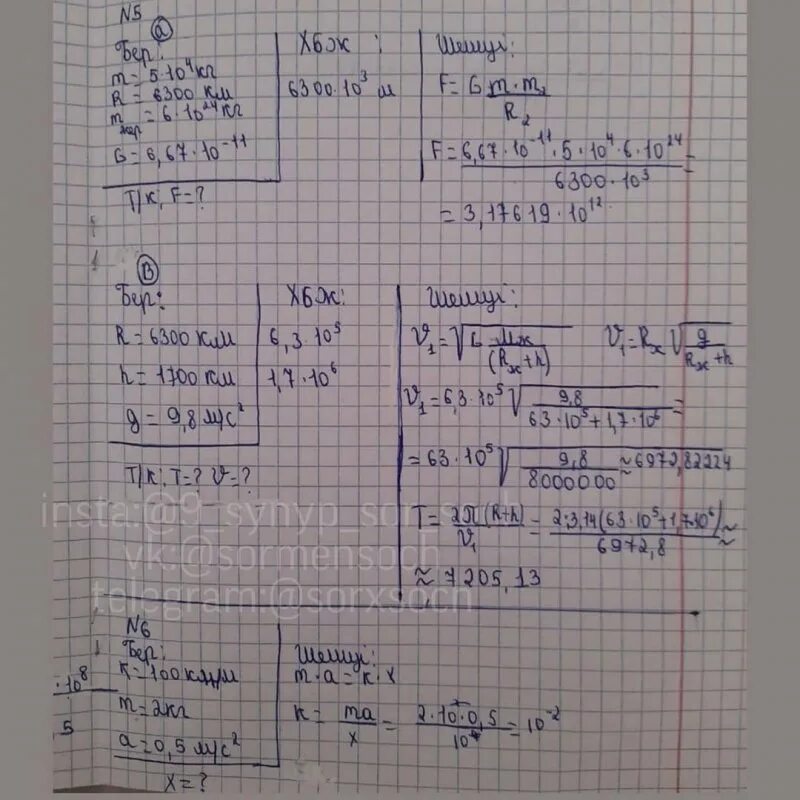 N5
ⓐ
Бер:
m = 5·10⁴ кг
R = 6300 км
m жер = 6·10²⁴ кг
G = 6,67·10⁻¹¹
Т/к; F=?
ХБЖ:
6300·10³ м
Шешуі:
F = G m·m₂ / R₂
F = 6,67·10⁻¹¹·5·10⁴·6·10²⁴ / 6300·10³ =
= 3,17619·10¹²
ⓑ
Бер:
R = 6300 км
h = 1700 км
g = 9,8 м/с²
Т/к; T=? 𝒱=?
ХБЖ:
6,3·10⁵
1,7·10⁶
Шешуі:
𝒱₁ = √G Mж / (Rж+h) 𝒱₁ = Rж √g / Rж+h
𝒱₁ = 6,3·10⁵ √9,8 / 63·10⁵+1,7·10⁶ =
= 63·10⁵ √9,8 / 8000000 ≈ 6972,82224
T = 2π(R+h) / 𝒱₁ = 2·3,14(63·10⁵+1,7·10⁶) / 6972,8 ≈
≈ 7205,13
insta:@9_synyp_sor_soch
vk:@sormensoch
telegram:@sorxsoch
N6
Бер:
m = 2кг
a = 0,5 м/с²
x = ?
Шешуі:
m·a = к·x
к = ma / x = 2·10·0,5 / 10⁴ = 10⁻²
·10⁸
5